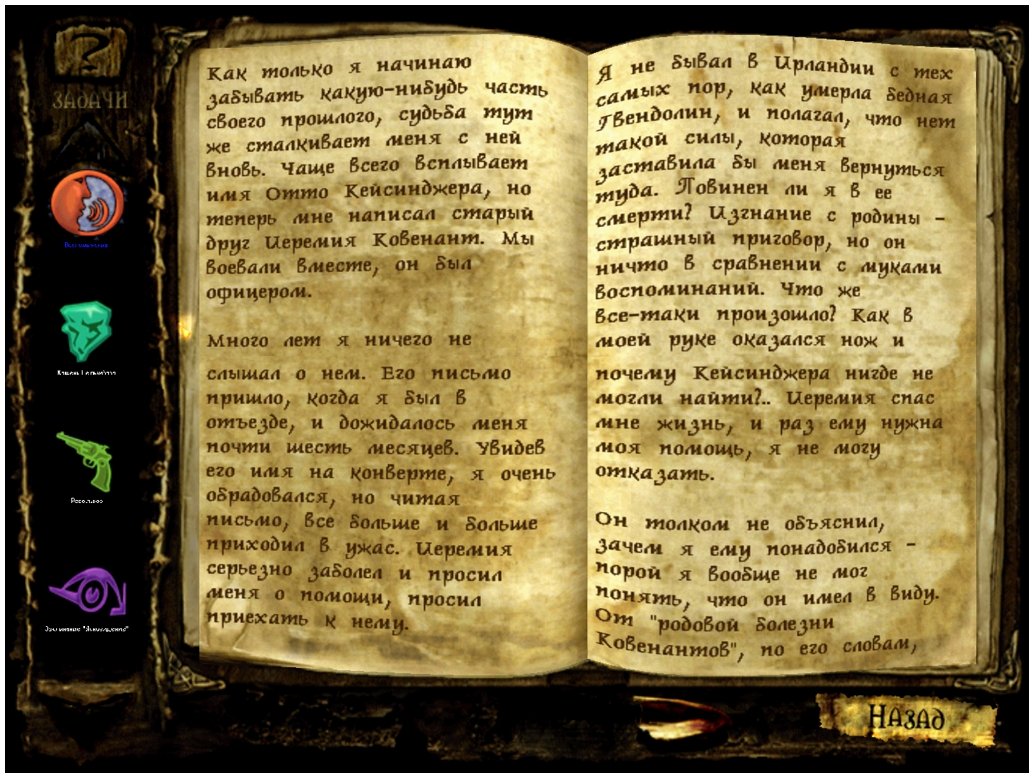 ЗАДАЧИ
Как только я начинаю
забывать какую-нибудь часть
своего прошлого, судьба тут
же сталкивает меня с ней
вновь. Чаще всего всплывает
имя Отто Кейсинджера, но
теперь мне написал старый
друг Иеремия Ковенант. Мы
воевали вместе, он был
офицером.
Много лет я ничего не
слышал о нем. Его письмо
пришло, когда я был в
отъезде, и дожидалось меня
почти шесть месяцев. Увидев
его имя на конверте, я очень
обрадовался, но читая
письмо, все больше и больше
приходил в ужас. Иеремия
серьезно заболел и просил
меня о помощи, просил
приехать к нему.
Я не бывал в Ирландии с тех
самых пор, как умерла бедная
Гвендолин, и полагал, что нет
такой силы, которая
заставила бы меня вернуться
туда. Повинен ли я в ее
смерти? Изгнание с родины -
страшный приговор, но он
ничто в сравнении с муками
воспоминаний. Что же
все-таки произошло? Как в
моей руке оказался нож и
почему Кейсинджера нигде не
могли найти?.. Иеремия спас
мне жизнь, и раз ему нужна
моя помощь, я не могу
отказать.
Он толком не объяснил,
зачем я ему понадобился -
порой я вообще не мог
понять, что он имел в виду.
От "родовой болезни
Ковенантов", по его словам,
Револьвер
НАЗАД